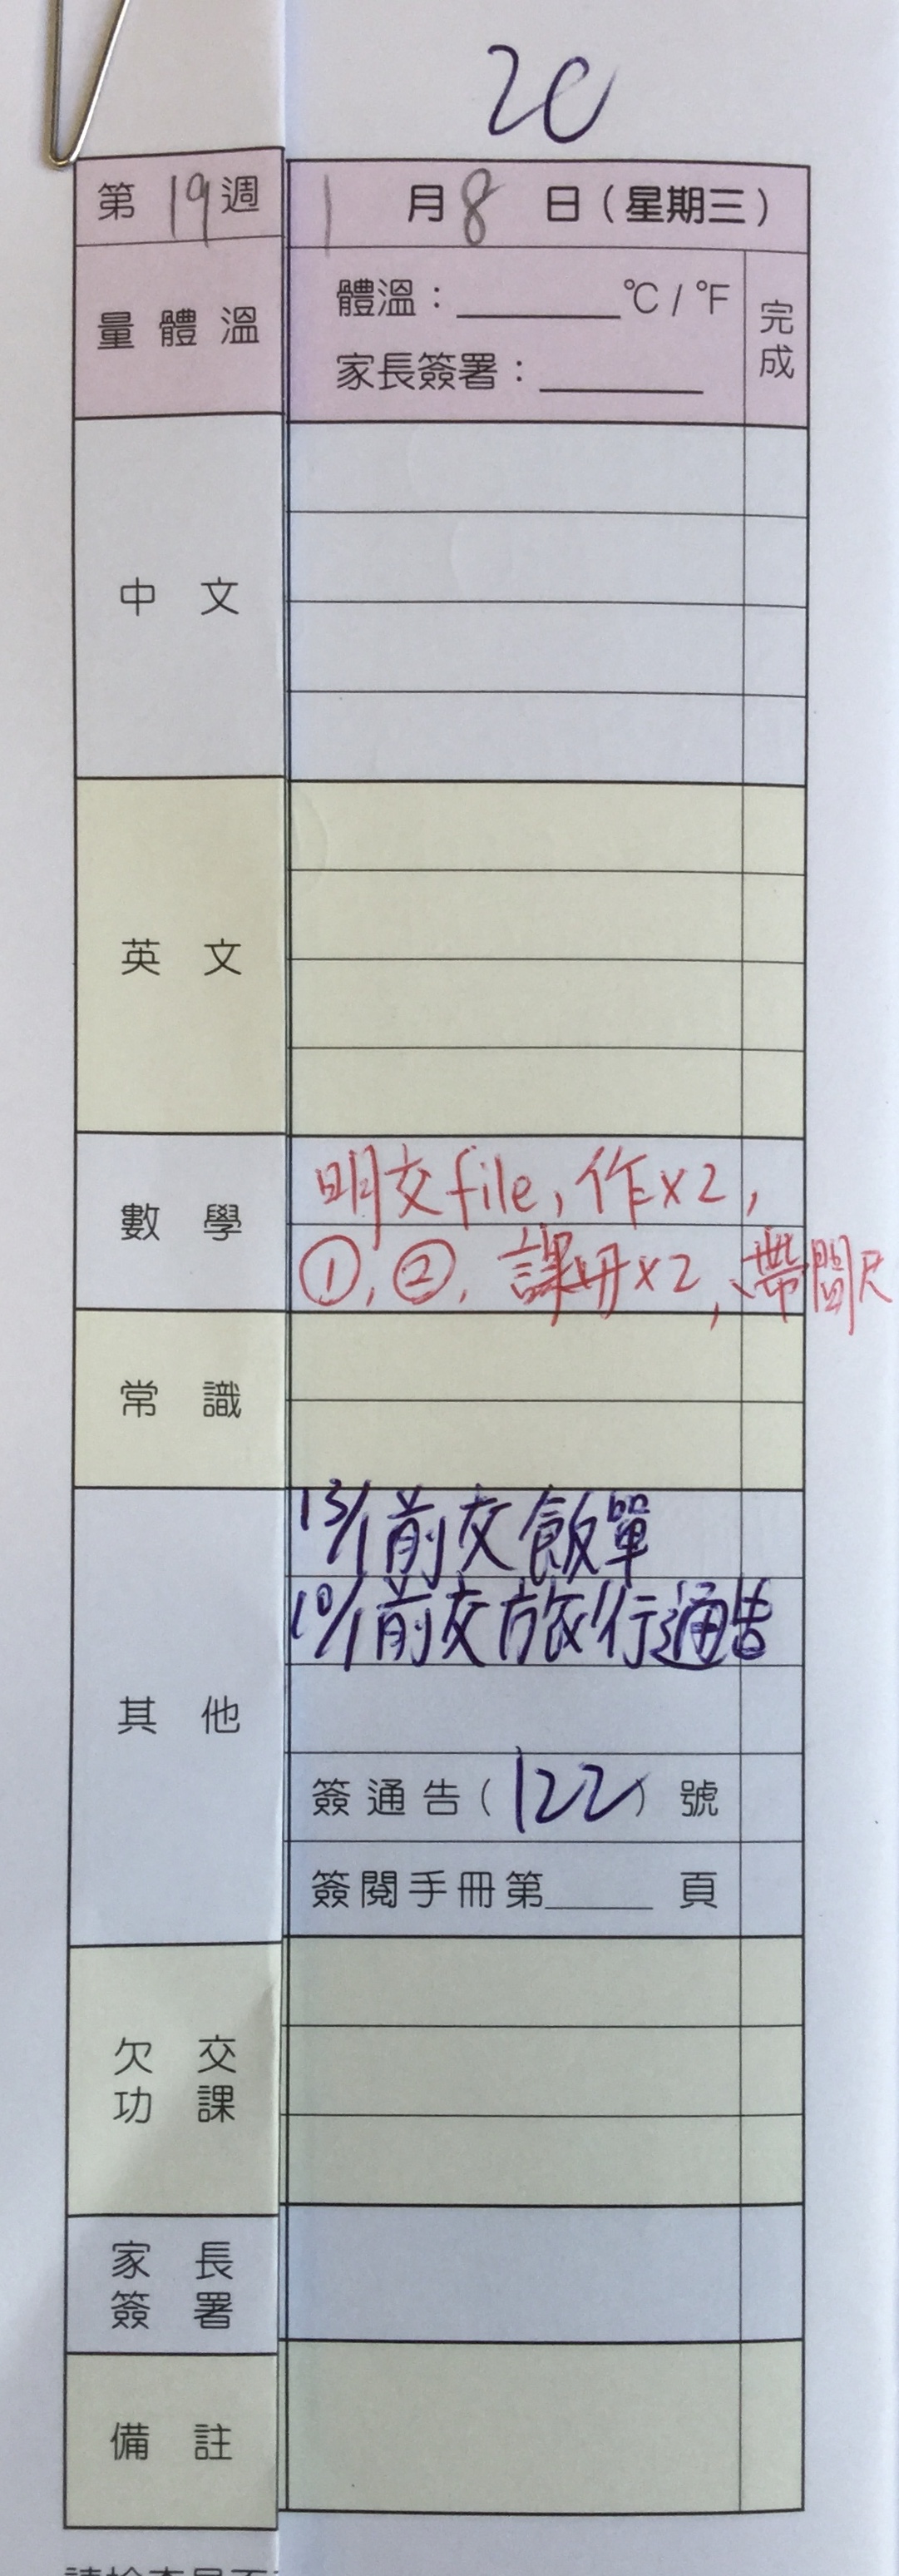 2C
第 19 週 1 月 8 日(星期三)
量體溫
體溫:______°C / °F
家長簽署:______
完成
中文
英文
數學
明交file, 作x2,
①, ②, 課冊x2, 帶間尺
常識
其他
13/1前交飯單
10/1前交旅行通告
簽通告(122)號
簽閱手冊第____頁
欠交功課
家長簽署
備註